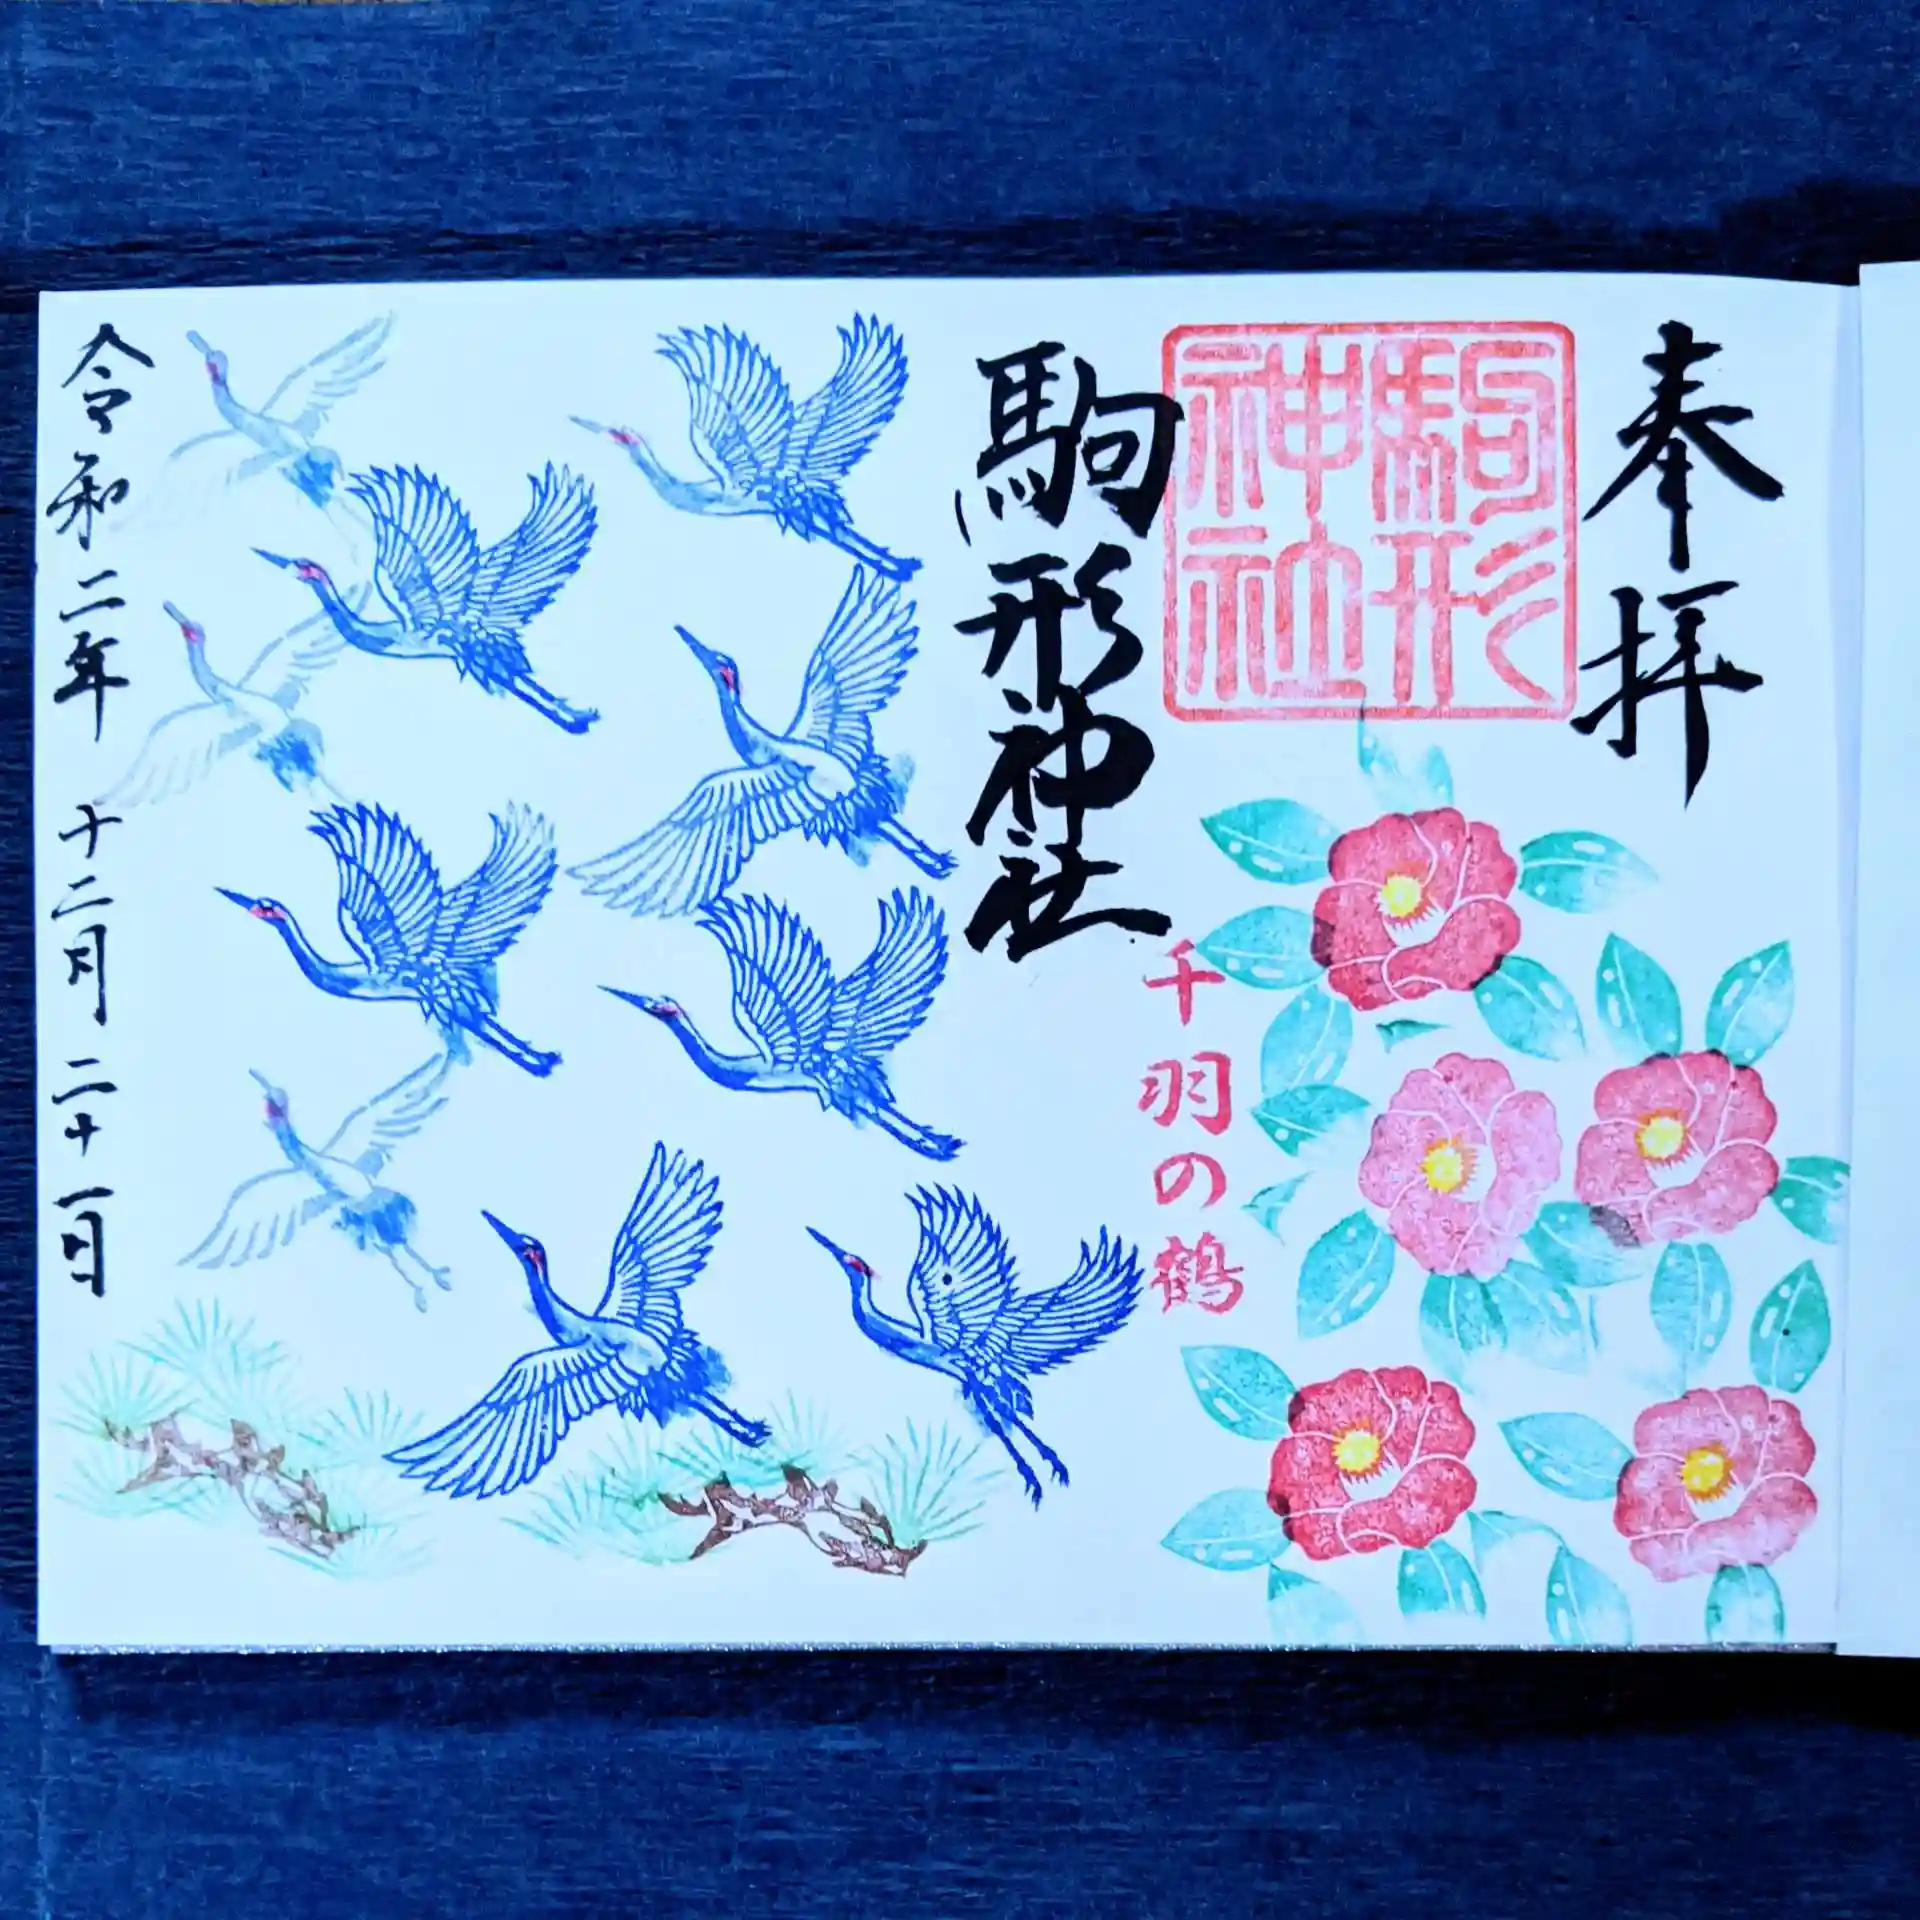 奉拝
駒形神社
駒形神社
千羽の鶴
令和二年 十二月 二十一日